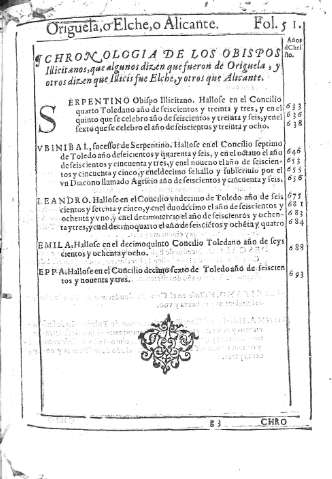 Origuela, o Elche, o Alicante. Fol. 51.
¶ CHRONOLOGIA DE LOS OBISPOS
Illicitanos, que algunos dizen que fueron de Origuela, y
otros dizen que Illicis fue Elche, y otros que Alicante.
Años
de Chri
sto.
SERPENTINO Obispo Illicitano. Hallose en el Concilio
quarto Toledano año de seiscientos y treinta y tres, y en el 633
quinto que se celebro año de seiscientos y treinta y seis, y en el 636
sexto que se celebro el año de seiscientos y treinta y ocho. 638
VBINIBAL, sucessor de Serpentino. Hallose en el Concilio septimo
de Toledo año de seiscientos y quarenta y seis, y en el octauo el año 646
de seiscientos y cincuenta y tres, y en el noueno el año de seiscien- 653
tos y cincuenta y cinco, y en el decimo se hallo y subscriuio por el 655
vn Diacono llamado Agricio año de seiscientos y cincuenta y seis. 656
LEANDRO. Hallose en el Concilio vndecimo de Toledo año de seis 675
cientos y setenta y cinco, y en el duodecimo el año de seiscientos y 681
ochenta y vno, y en el decimotercio el año de seiscientos y ochen- 683
ta y tres, y en el decimoquarto el año de seiscientos y ochēta y quatro 684
EMILA, Hallose en el decimoquinto Concilio Toledano año de seys
cientos y ochenta y ocho. 688
EPPA, Hallose en el Concilio decimo sexto de Toledo año de seiscien
tos y nouenta y tres. 693
g 3 CHRO